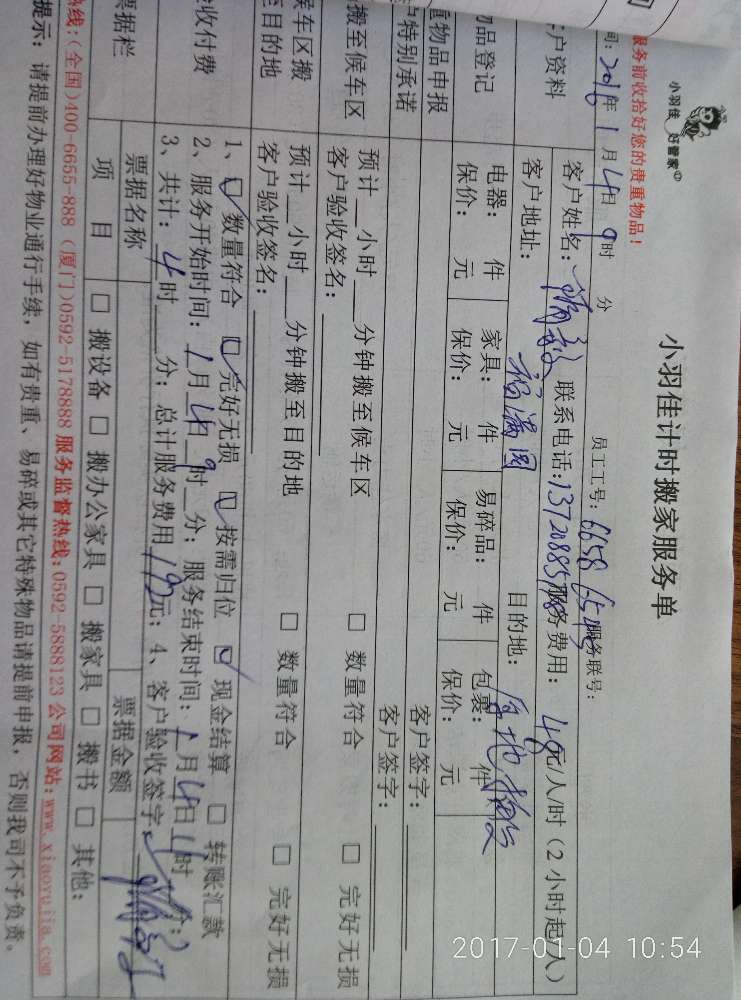 小羽佳 好管家
小羽佳计时搬家服务单
服务前收拾好您的贵重物品！
员工工号：6658 服务联号：
间：2016年1月4日9时 分
客户资料
客户姓名： 联系电话： 服务费用：48元/人/时（2小时起/人）
客户地址：福满园 目的地：原地搬
物品登记
电器： 件 家具： 件 易碎品： 件 包裹： 件
保价： 元 保价： 元 保价： 元 保价： 元
重物品申报 客户签字：
户特别承诺 客户签字：
搬至候车区
预计__小时__分钟搬至候车区 □ 数量符合 □ 完好无损
客户验收签名：
候车区搬至目的地
预计__小时__分钟搬至目的地 □ 数量符合 □ 完好无损
客户验收签名：
验收付费
1、☑ 数量符合 ☑ 完好无损 ☑ 按需归位 ☑ 现金结算 □ 转账汇款
2、服务开始时间：1月4日9时__分；服务结束时间：1月4日11时__分；
3、共计：4时__分；总计服务费用192元；4、客户验收签字：
票据栏
票据名称 票据金额
项 目 □ 搬设备 □ 搬办公家具 □ 搬家具 □ 搬书 □ 其他：
热线：(全国)400-6655-888 (厦门)0592-5178888 服务监督热线：0592-5888123 公司网站：www.xiaoyujia.com
提示：请提前办理好物业通行手续，如有贵重、易碎或其它特殊物品请提前申报，否则我司不予负责。
2017-01-04 10:54